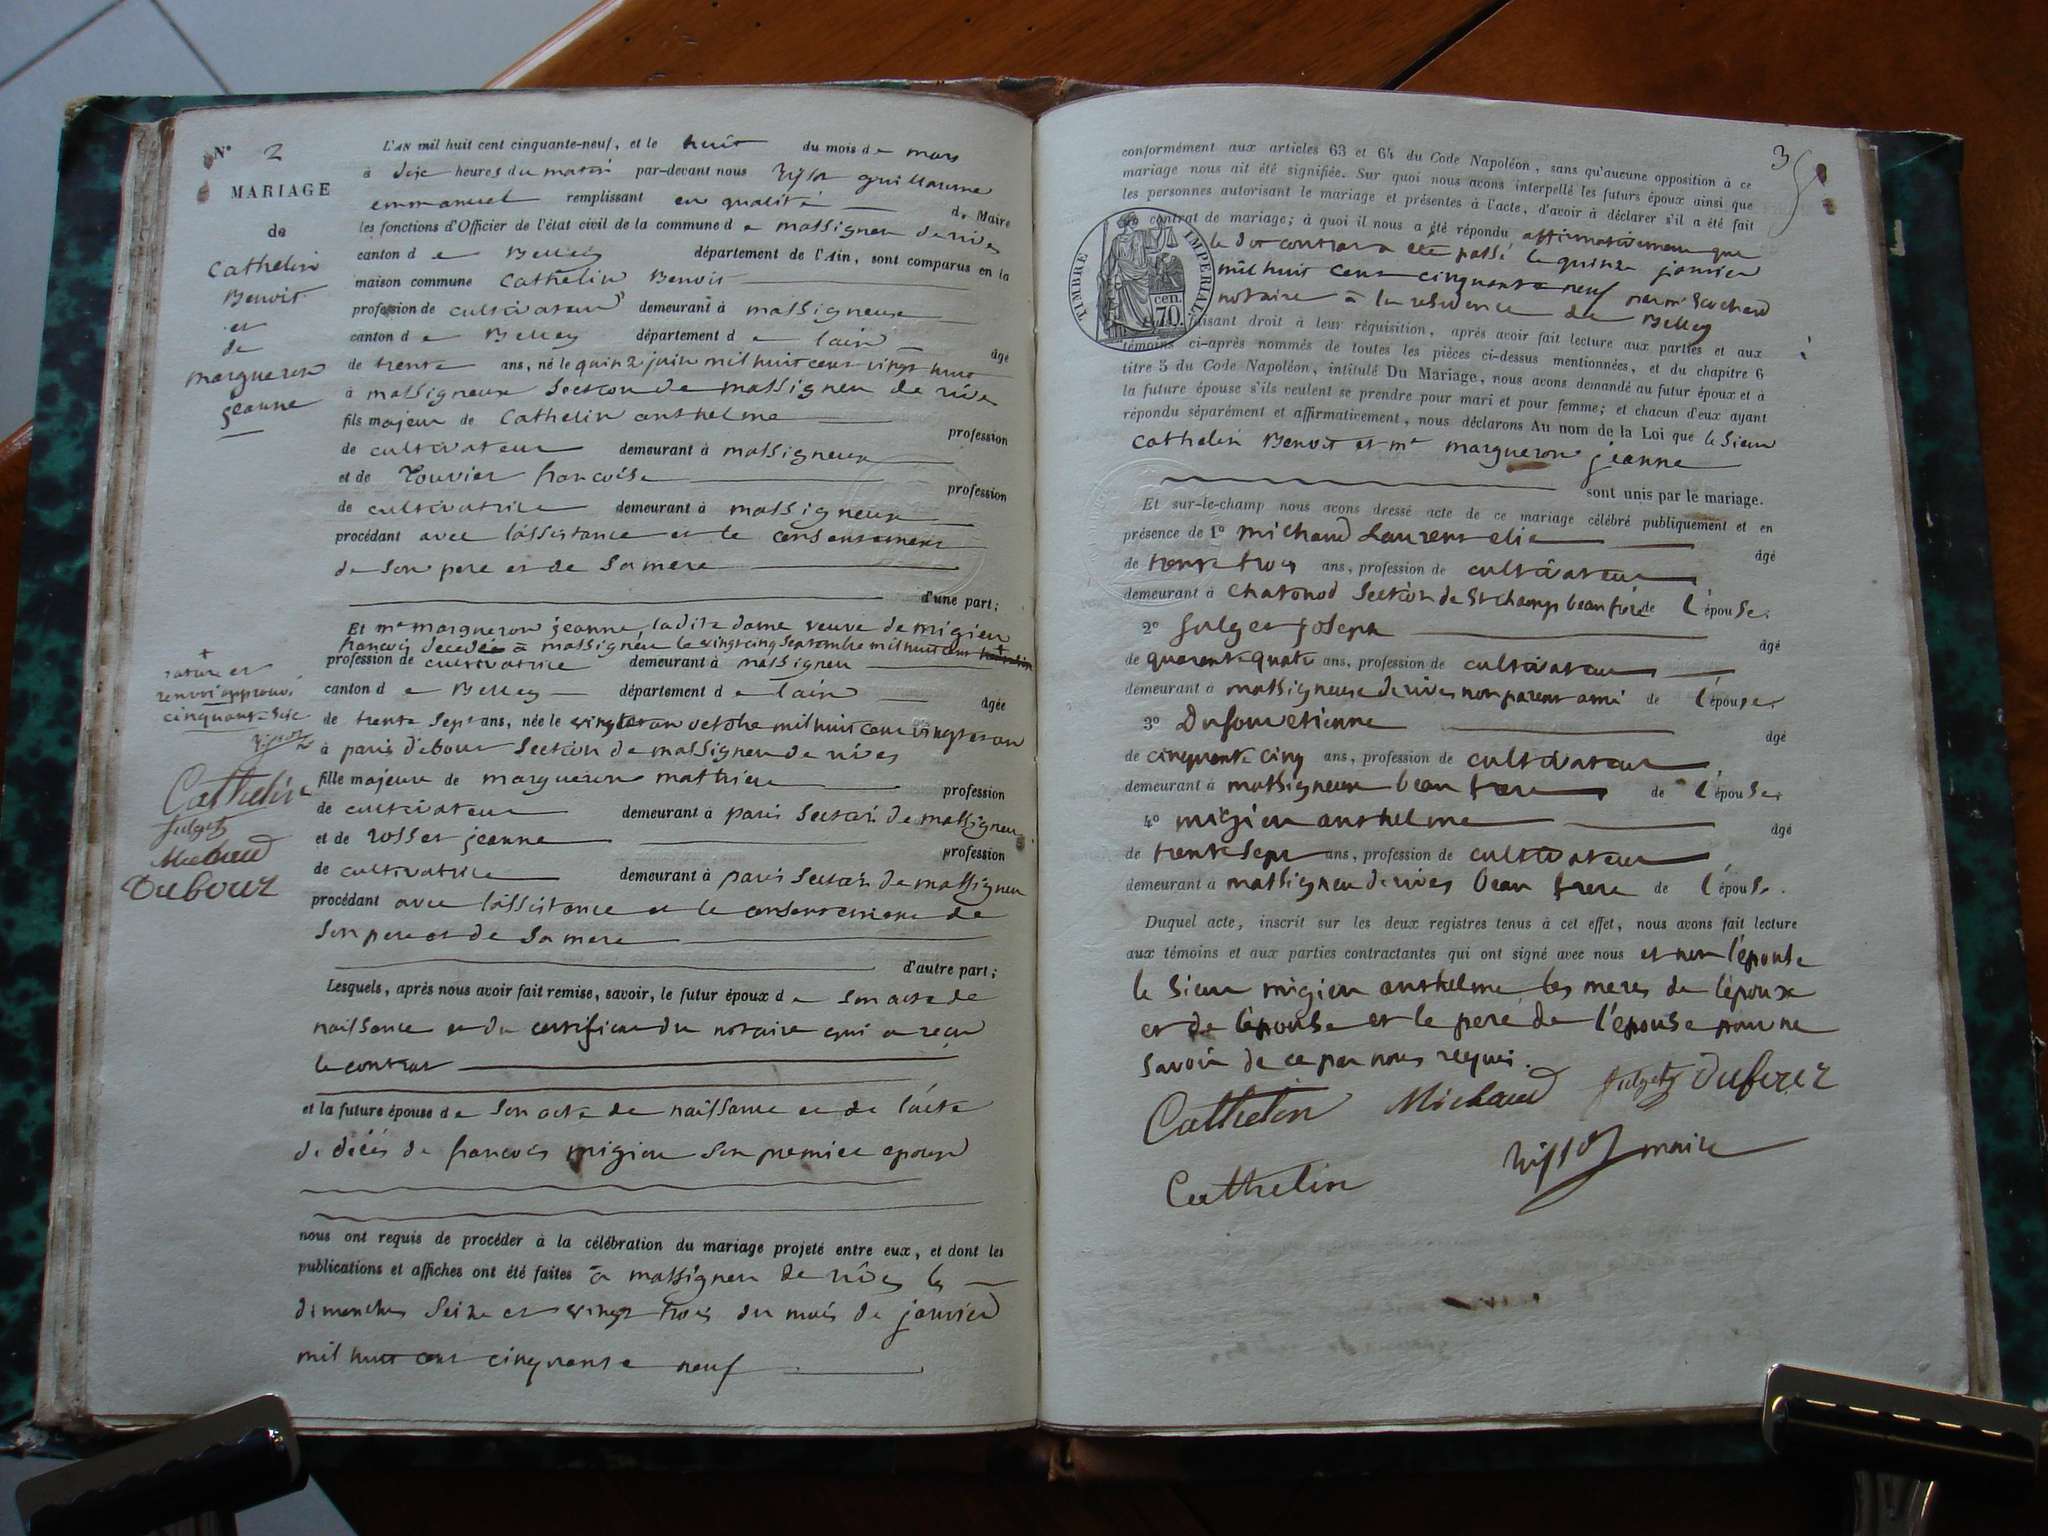 N° 2
MARIAGE
de
Cathelin
Benoit
et
de
margueron
jeanne
L'AN mil huit cent cinquante-neuf, et le huit du mois de mars
à dix heures du matin par-devant nous guillaume
emmanuel remplissant en qualité de Maire
les fonctions d'Officier de l'état civil de la commune de massigneu de rives
canton de Belley département de l'Ain, sont comparus en la
maison commune Cathelin Benoit
profession de cultivateur demeurant à massigneux
canton de Belley département de lain âgé
de trente ans, né le quinz juin mil huit cent vingt huit
à massigneux Section de massigneu de rives
fils majeur de Cathelin anthelme profession
de cultivateur demeurant à massigneux
et de Rouvier francoise profession
de cultivatrice demeurant à massigneux
procédant avec lassistance et le consentement
de son pere et de sa mere
d'une part;
Et me margueron jeanne, la dite dame veuve de migieu
francois decedée à massigneu le vingt cinq septembre mil huit cent
profession de cultivatrice demeurant à massigneu
canton de Belley département de lain âgée
de trente sept ans, née le vingt et un octobre mil huit cent vingt et un
à paris debout Section de massigneu de rives
fille majeure de margueron mathieu profession
de cultivateur demeurant à paris Section de massigneu
et de rosset jeanne profession
de cultivatrice demeurant à paris Section de massigneu
procédant avec lassistance et le consentement de
son pere et de sa mere
d'autre part;
Lesquels, après nous avoir fait remise, savoir, le futur époux de son acte de
naissance et du certificat du notaire qui a reçu
le contrat
et la future épouse de son acte de naissance et de l'acte
de décès de francois migieu son premier epoux
nous ont requis de procéder à la célébration du mariage projeté entre eux, et dont les
publications et affiches ont été faites à massigneu de rives les
dimanches seize et vingt trois du mois de janvier
mil huit cent cinquante neuf
+
rature et
renvoi approuvé
cinquante six
Cathelin
Julget
Michaud
Dufour
3
conformément aux articles 63 et 64 du Code Napoléon, sans qu'aucune opposition à ce
mariage nous ait été signifiée. Sur quoi nous avons interpellé les futurs époux ainsi que
les personnes autorisant le mariage et présentes à l'acte, d'avoir à déclarer s'il a été fait
un contrat de mariage; à quoi il nous a été répondu affirmativement que
le dit contrat a été passé le quinze janvier
mil huit cent cinquante neuf par me
notaire à la residence de Belley
TIMBRE IMPERIAL
70 cen.
faisant droit à leur réquisition, après avoir fait lecture aux parties et aux
témoins ci-après nommés de toutes les pièces ci-dessus mentionnées, et du chapitre 6
titre 5 du Code Napoléon, intitulé Du Mariage, nous avons demandé au futur époux et à
la future épouse s'ils veulent se prendre pour mari et pour femme; et chacun d'eux ayant
répondu séparément et affirmativement, nous déclarons Au nom de la Loi que le Sieur
Cathelin Benoit et me margueron jeanne
sont unis par le mariage.
Et sur-le-champ nous avons dressé acte de ce mariage célébré publiquement et en
présence de 1° michaud Laurent elie âgé
de trente trois ans, profession de cultivateur
demeurant à Chatonod Section de St champ beau frère de l'épouse.
2° Julget Joseph âgé
de quarente quatre ans, profession de cultivateur
demeurant à massigneux de rives non parent ami de l'épouse.
3° Dufour etienne âgé
de cinquante cinq ans, profession de cultivateur
demeurant à massigneux beau frere de l'épouse.
4° migieu anthelme âgé
de trente sept ans, profession de cultivateur
demeurant à massigneu de rives beau frere de l'épouse.
Duquel acte, inscrit sur les deux registres tenus à cet effet, nous avons fait lecture
aux témoins et aux parties contractantes qui ont signé avec nous et non l'épouse
le sieur migieu anthelme les meres de l'époux
et de l'épouse et le pere de l'épouse pour ne
savoir de ce par nous requis.
Cathelin Michaud Julget Dufour
maire
Cathelin